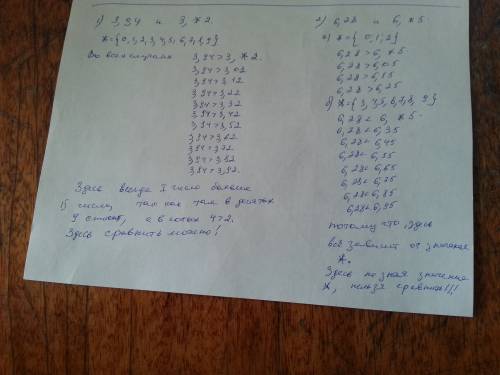 1) 3,94 и 3,*2.
*={0,1,2,3,4,5,6,7,8,9}
Во всех случаях 3,94>3,*2.
3,94>3,02
3,94>3,12
3,94>3,22
3,94>3,32
3,94>3,42
3,94>3,52
3,94>3,62
3,94>3,72
3,94>3,82
3,94>3,92.
Здесь всегда I число больше
числа, так как там в десятых
9 стоит, а в сотых 4>2.
Здесь сравнить можно!
2) 6,28 и 6,*5
а) *={0,1,2}
6,28>6,*5
6,28>6,05
6,28>6,15
6,28>6,25
б) *={3,4,5,6,7,8,9}
6,28<6,*5
6,28<6,35
6,28<6,45
6,28<6,55
6,28<6,65
6,28<6,75
6,28<6,85
6,28<6,95
потому что здесь
всё зависит от значения
*.
Здесь не зная значение
*, нельзя сравнить!!!